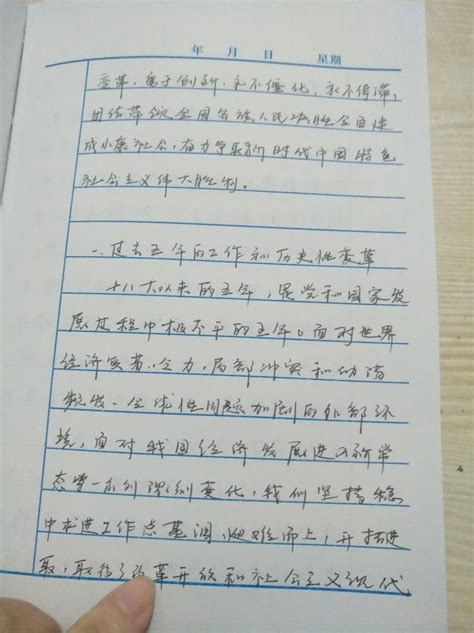 年 月 日 星期
变革，勇于创新，永不僵化，永不停滞，
团结带领全国各族人民决胜全面建
成小康社会，奋力夺取新时代中国特色
社会主义伟大胜利。
一、过去五年的工作和历史性变革
十八大以来的五年，是党和国家发
展进程中极不平凡的五年。面对世界
经济复苏乏力，局部冲突和动荡
频发、全球性问题加剧的外部环
境，面对我国经济发展进入新常
态等一系列深刻变化，我们坚持稳
中求进工作总基调，迎难而上，开拓进
取，取得了改革开放和社会主义现代